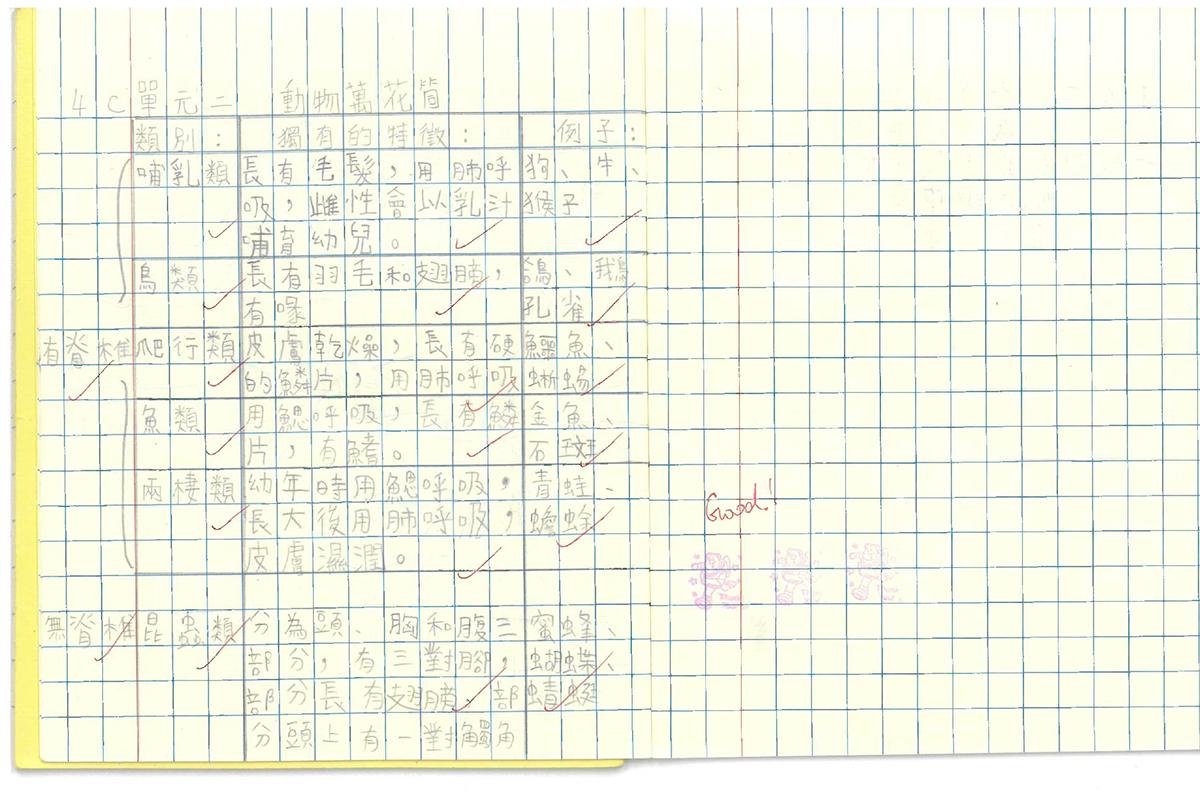 4C單元二 動物萬花筒
類別： 獨有的特徵： 例子：
哺乳類 長有毛髮，用肺呼 狗、牛、
吸，雌性會以乳汁 猴子
哺育幼兒。
鳥類 長有羽毛和翅膀， 鴿、我鳥
有喙 孔雀
有脊椎 爬行類 皮膚乾燥，長有硬 鱷魚、
的鱗片，用肺呼吸 蜥蜴
魚類 用鰓呼吸，長有鱗 金魚、
片，有鰭。 石斑
兩棲類 幼年時用鰓呼吸， 青蛙、
長大後用肺呼吸， 蟾蜍
皮膚濕潤。
Good!
無脊椎 昆蟲類 分為頭、胸和腹三 蜜蜂、
部分，有三對腳， 蝴蝶、
部分長有翅膀、部 蜻蜓
分頭上有一對觸角